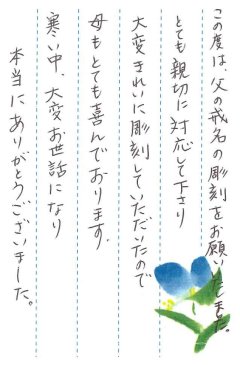 この度は、父の戒名の彫刻をお願いしました。
とても親切に対応して下さり
大変きれいに彫刻していただいたので
母もとても喜んでおります。
寒い中、大変お世話になり
本当にありがとうございました。